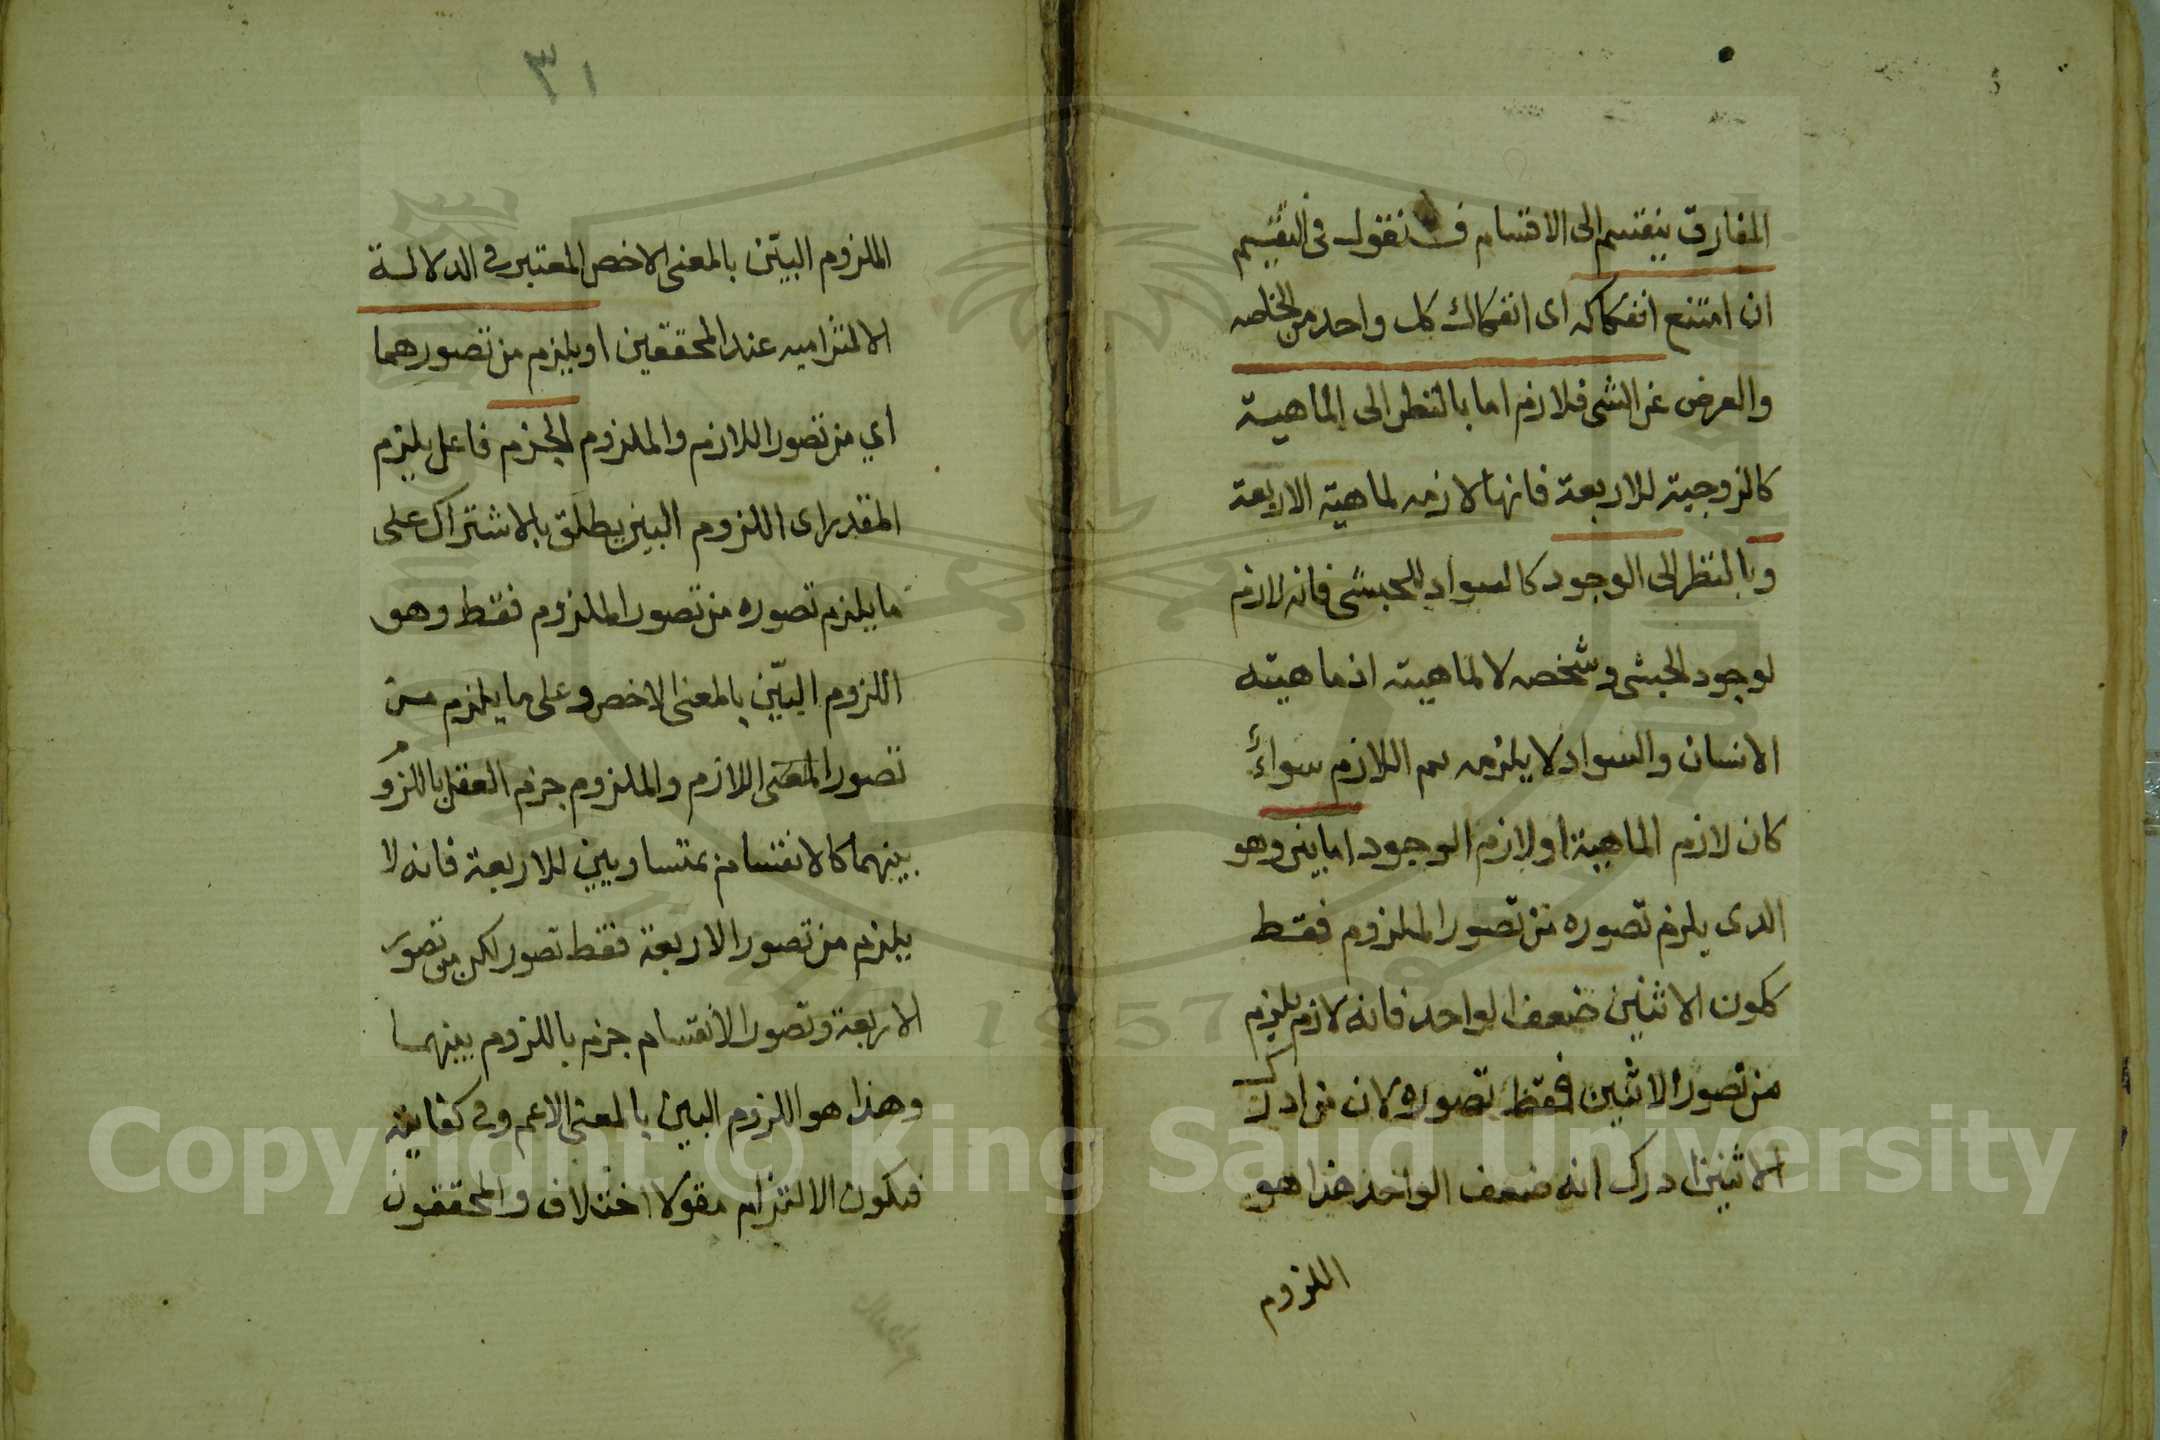 المفارق ينقسم الى الاقسام فنقول فى التقسيم
ان امتنع انفكاكه اى انفكاك كل واحد من الخاصه
والعرض عن الشى فلازم اما بالنظر الى الماهية
كالزوجية للاربعة فانها لازمه لماهية الاربعة
وبالنظر الى الوجود كالسواد للحبشى فانه لازم
لوجود الحبشى وشخصه لا لماهيته اذ ماهيته
الانسان والسواد لا يلزمه ثم اللازم سواءً
كان لازم الماهية او لازم الوجود اما بين وهو
الذى يلزم تصوره من تصور الملزوم فقط
ككون الاثنين ضعف الواحد فانه لازم يلزم
من تصور الاثنين فقط تصوره لان من ادرك
الاثنين ادرك انه ضعف الواحد هذا هو
اللزوم
٣١
اللزوم البيّن بالمعنى الاخص المعتبر فى الدلالة
الالتزاميه عند المحققين او يلزم من تصورهما
اي من تصور اللازم والملزوم الجزم فاعل يلزم
المقدر اى اللزوم البين يطلق بالاشتراك على
ما يلزم تصوره من تصور الملزوم فقط وهو
اللزوم البيّن بالمعنى الاخص وعلى ما يلزم من
تصور المعنى اللازم والملزوم جزم العقل باللزوم
بينهما كالانقسام بمتساويين للاربعة فانه لا
يلزم من تصور الاربعة فقط تصور لكن من تصور
الاربعة وتصور الانقسام جزم باللزوم بينهما
وهذا هو اللزوم البين بالمعنى الاعم وفى كفايته
فيكون الالتزام مقولا اختلاف والمحققون
1957
Copyright © King Saud University